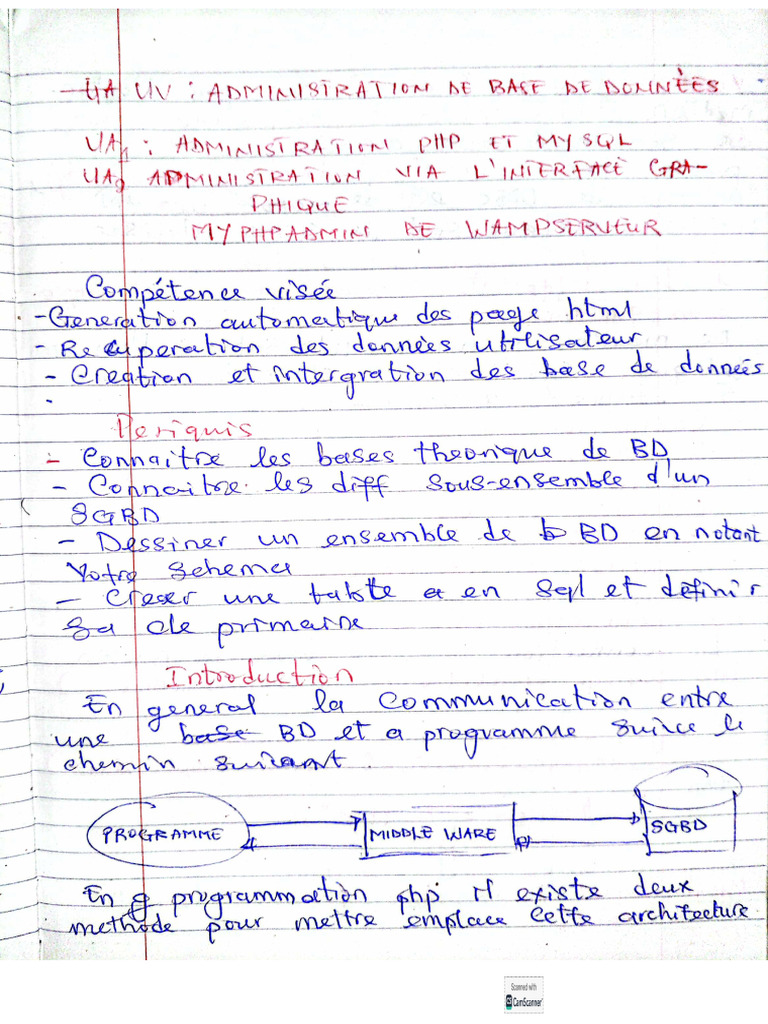 UV : ADMINISTRATION DE BASE DE DONNÈES
UA1 : ADMINISTRATION PHP ET MYSQL
UA2 ADMINISTRATION VIA L'INTERFACE GRA-
PHIQUE
MYPHPADMIN DE WAMPSERVEUR
Compétence visée
- Generation automatique des page html
- Recuperation des données utilisateur
- Creation et intergration des base de données
Periquis
- Connaitre les bases theorique de BD
- Connaitre les diff sous-ensemble d'un
SGBD
- Dessiner un ensemble de BD en notant
Votre schema
- Creer une table en Sql et definir
sa cle primaire
Introduction
En general la communication entre
une base BD et a programme suive le
chemin suivant
PROGRAMME
MIDDLE WARE
SGBD
En programmation php il existe deux
methode pour mettre emplace cette architecture
Scanned with
CamScanner